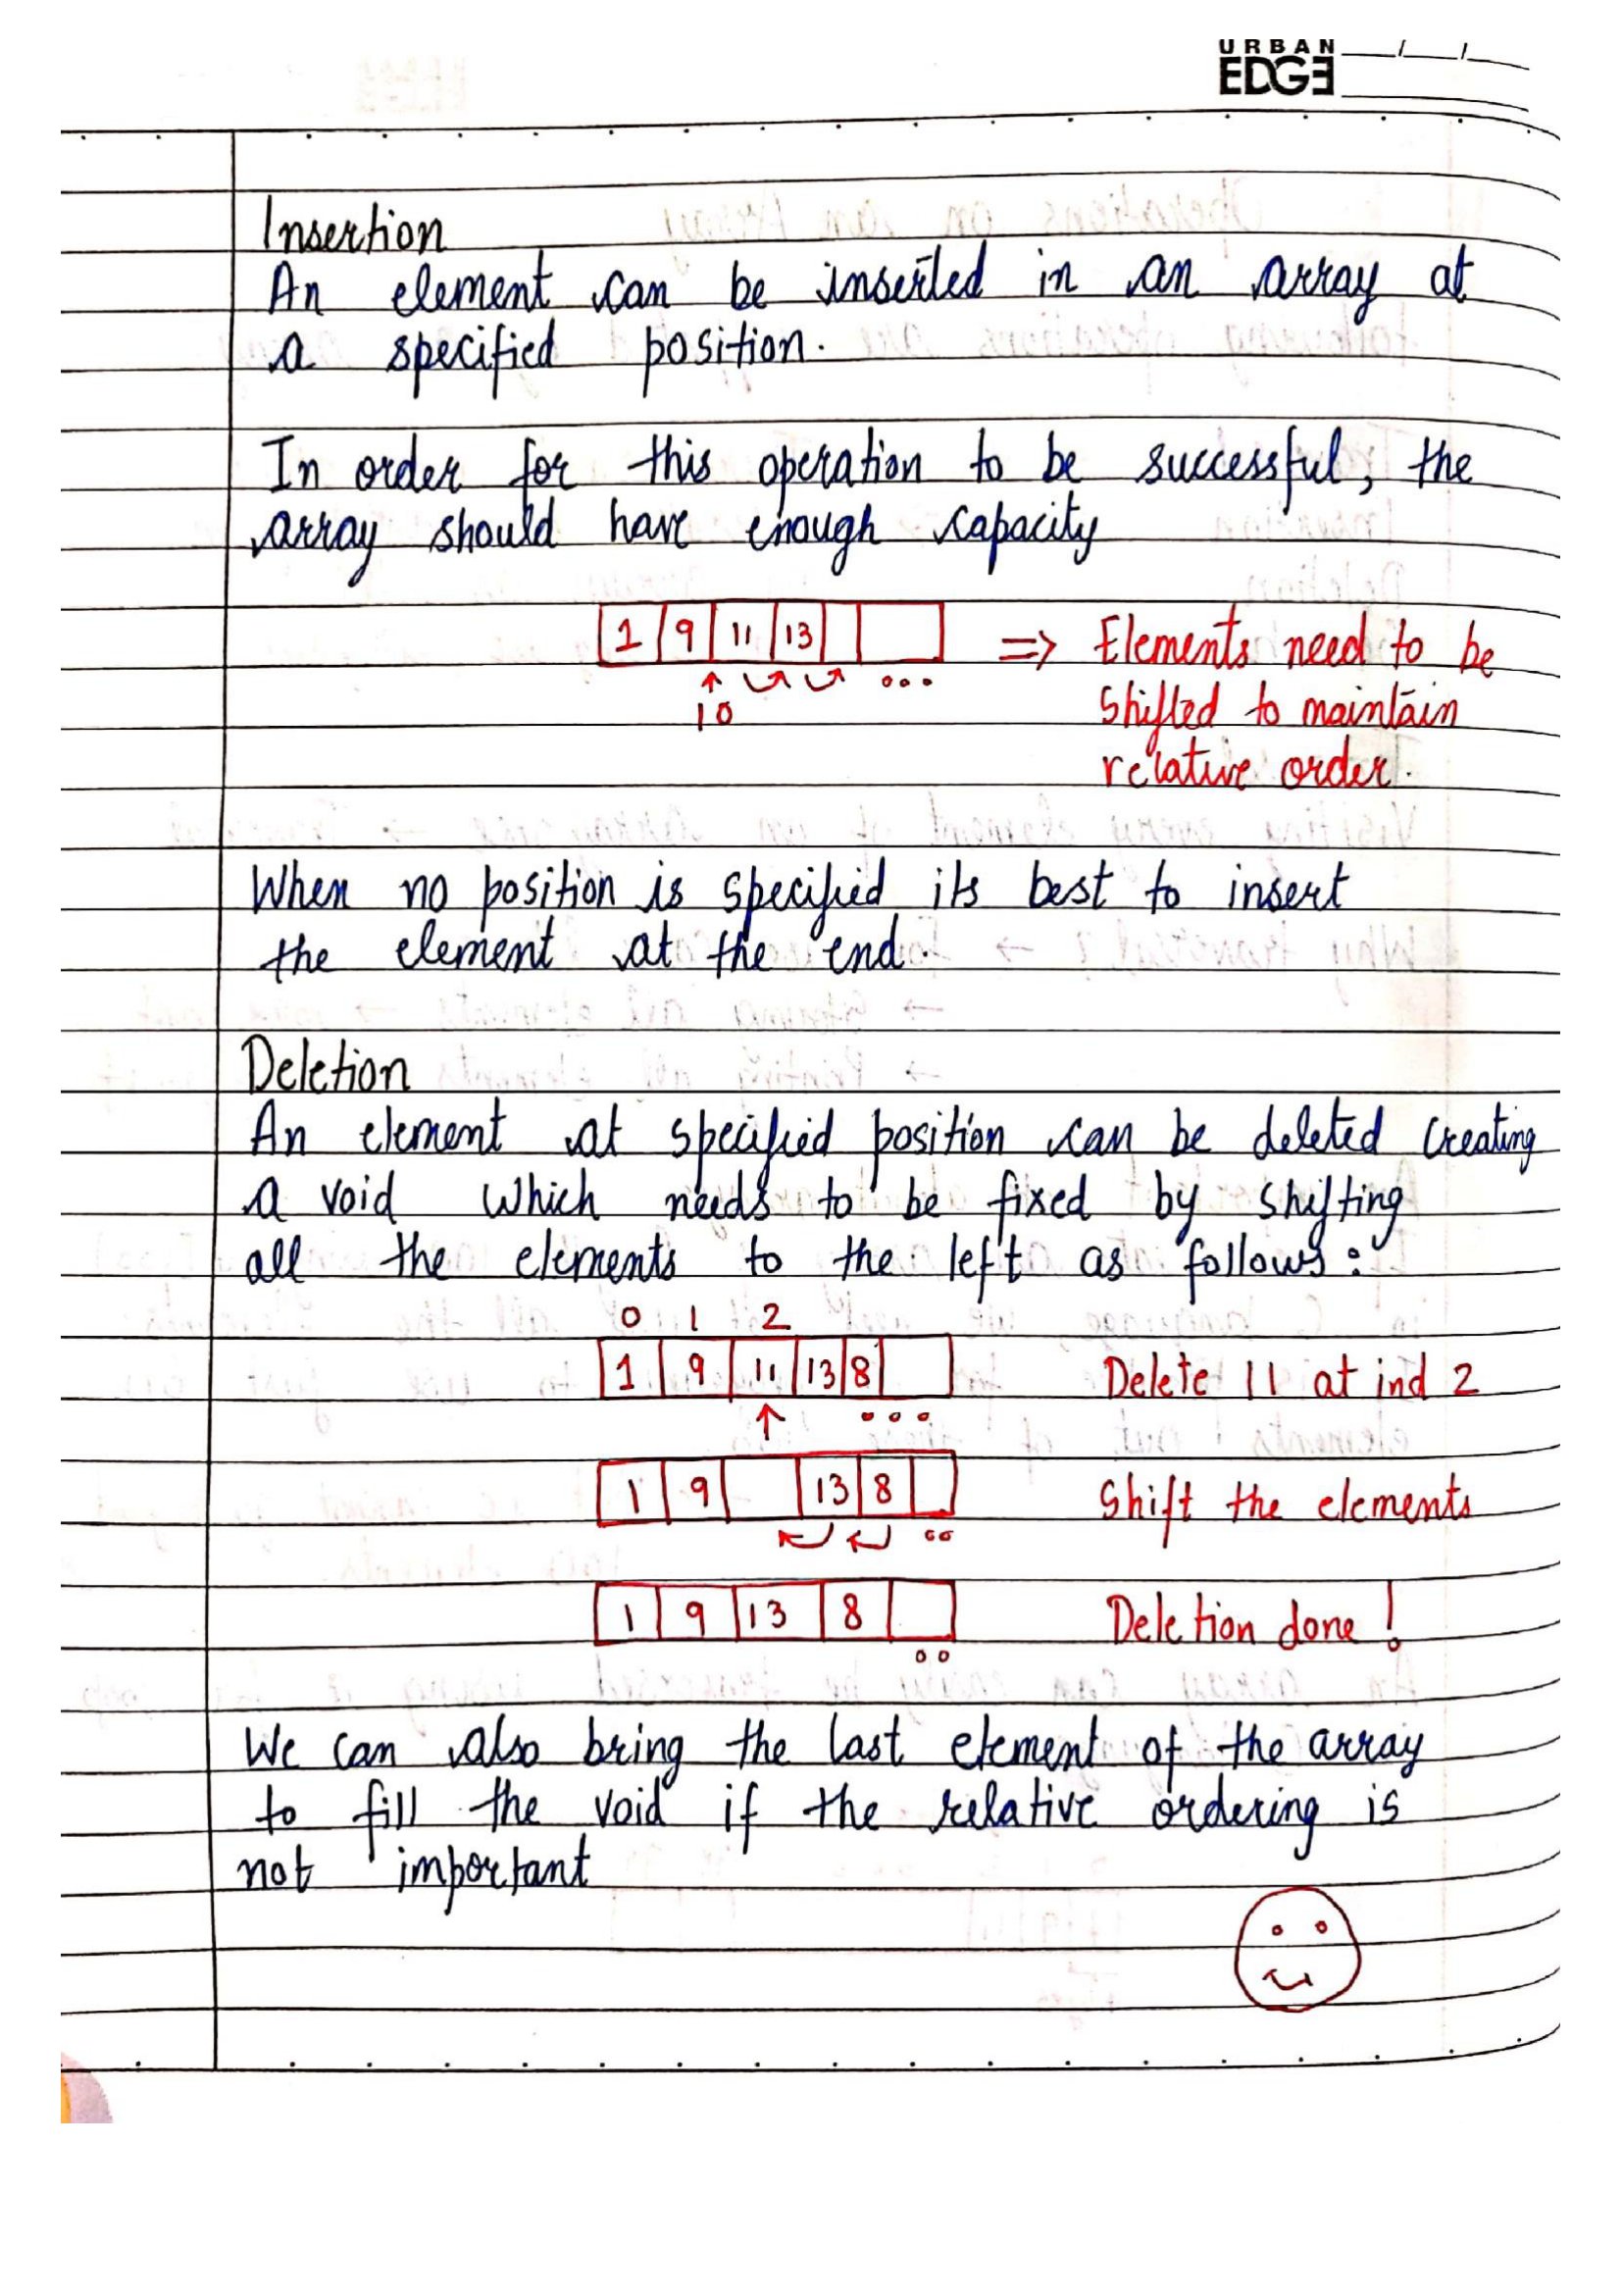 URBAN
EDGE
Insertion
An element can be inserted in an array at
a specified position.
In order for this operation to be successful, the
array should have enough capacity
1 9 11 13
10
=> Elements need to be
shifted to maintain
relative order.
When no position is specified its best to insert
the element at the end.
Deletion
An element at specified position can be deleted creating
a void which needs to be fixed by shifting
all the elements to the left as follows:
0 1 2
1 9 11 13 8 Delete 11 at ind 2
1 9 13 8 Shift the elements
1 9 13 8 Deletion done!
We can also bring the last element of the array
to fill the void if the relative ordering is
not important